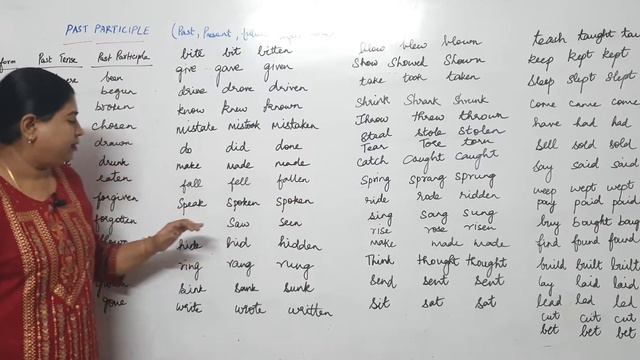 PAST PARTICIPLE (Past, Present,
form Past Tense Past Participle
been
begun
broken
chosen
drawn
drunk
eaten
forgiven
forgotten
gone
bite bit bitten
give gave given
drive drove driven
know knew known
mistake mistook mistaken
do did done
make made made
fall fell fallen
speak spoken spoken
saw seen
hide hid hidden
ring rang rung
sink sank sunk
write wrote written
blow blew blown
Show Showed Shown
take took taken
Shrink Shrank Shrunk
Throw threw thrown
Steal stole stolen
Tear Tore torn
Catch Caught Caught
Spring sprang sprung
ride rode ridden
sing sang sung
rise rose risen
make made made
Think thought thought
Send sent sent
Sit sat sat
teach taught tau
keep kept kept
Sleep Slept Slept
come came come
have had had
Sell sold sold
Say said said
weep wept wept
pay paid paid
buy bought baug
find found found
build built built
lay laid laid
lead led led
cut cut cut
bet bet bet